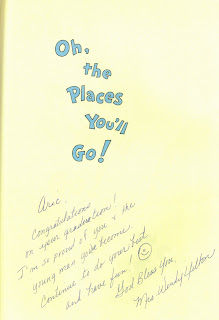 Oh,
the
Places
You'll
Go!
Aric,
Congratulations
on your graduation!
I'm so proud of you & the
young man you've become.
Continue to do your best
and have fun!
God Bless You,
Mrs Wendy